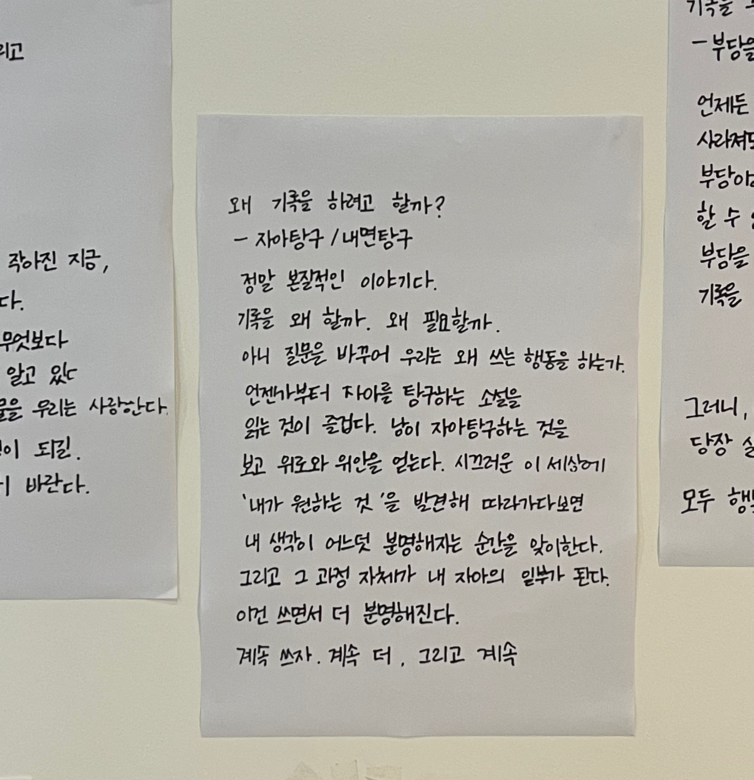 리고
작아진 지금,
다.
무엇보다
알고 있는
물을 우리는 사랑한다.
이 되길.
바란다.
왜 기록을 하려고 할까?
- 자아탐구 / 내면탐구
정말 본질적인 이야기다.
기록을 왜 할까. 왜 필요할까.
아니 질문을 바꾸어 우리는 왜 쓰는 행동을 하는가.
언젠가부터 자아를 탐구하는 소설을
읽는 것이 즐겁다. 남이 자아탐구하는 것을
보고 위로와 위안을 얻는다. 시끄러운 이 세상에
'내가 원하는 것'을 발견해 따라가다보면
내 생각이 어느덧 분명해지는 순간을 맞이한다.
그리고 그 과정 자체가 내 자아의 일부가 된다.
이건 쓰면서 더 분명해진다.
계속 쓰자. 계속 더, 그리고 계속
기록을
- 부담을
언제든
사라져도
부담이
할 수
부담을
기록을
그러니,
당장
모두